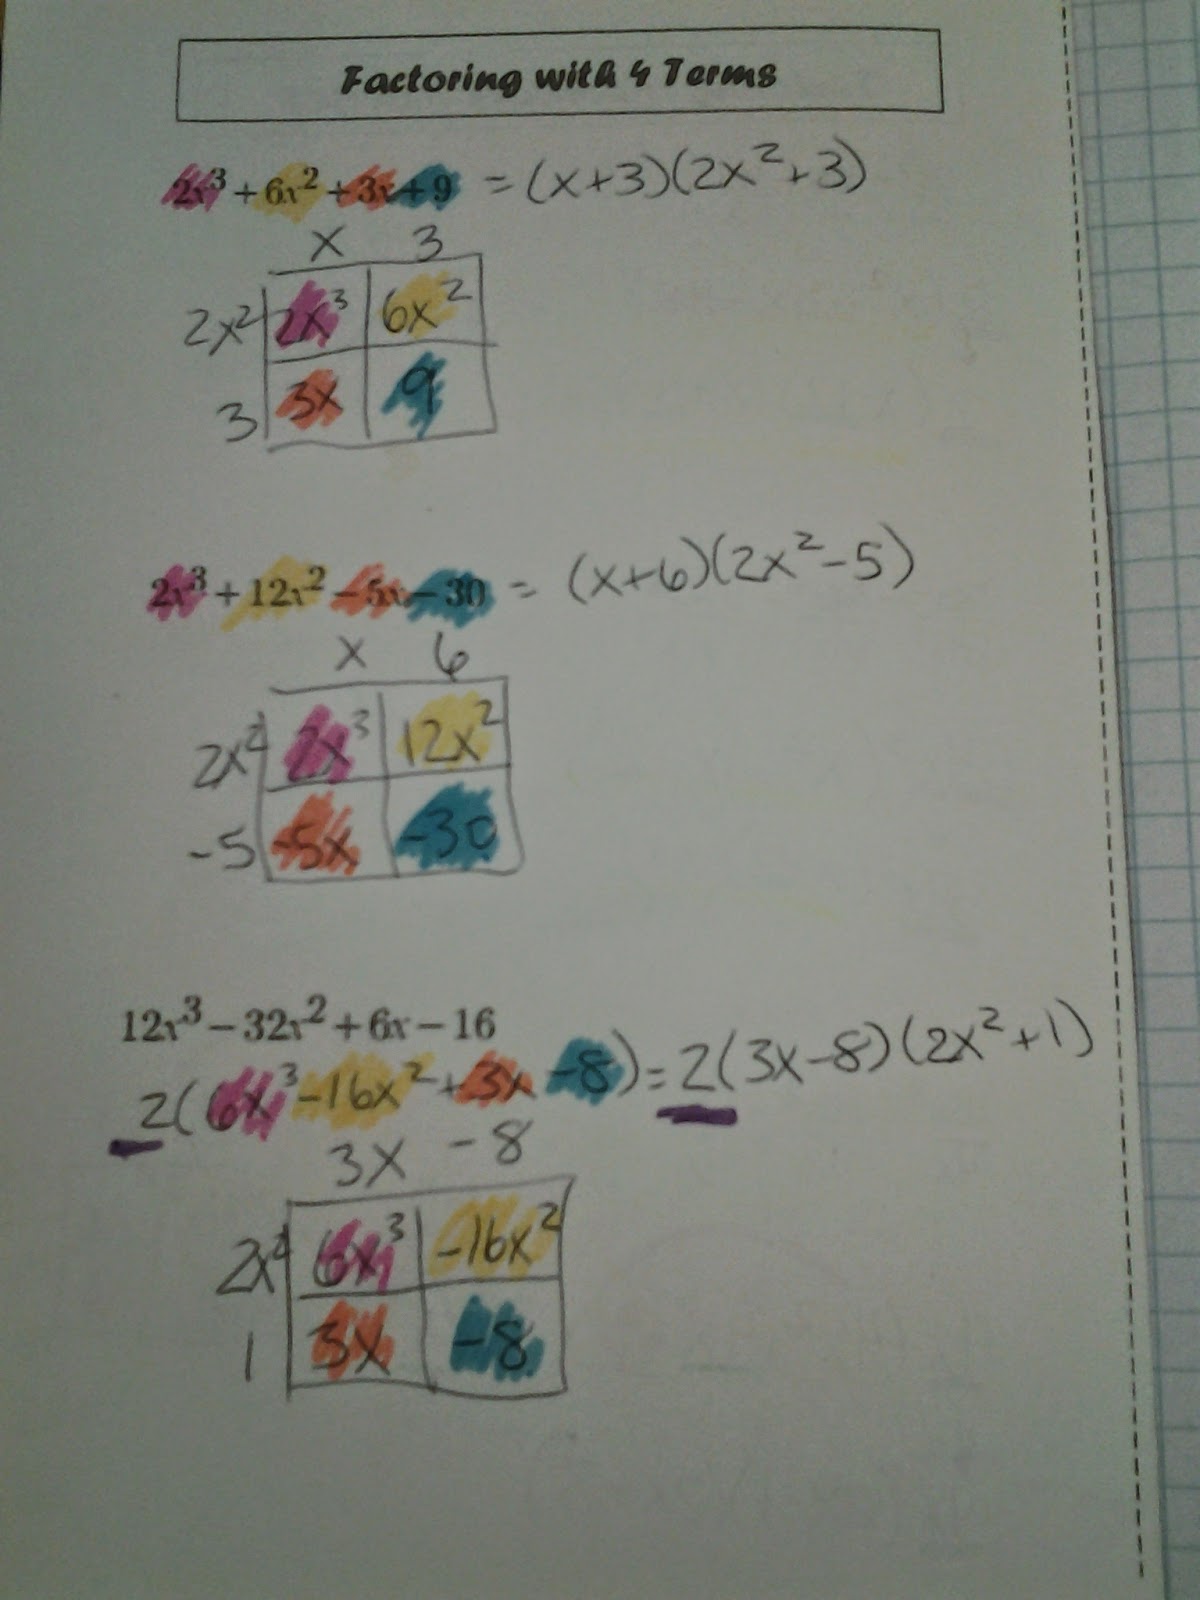 Factoring with 4 Terms
2x³ + 6x² + 3x + 9 = (x+3)(2x²+3)
x 3
2x² 2x³ 6x²
3 3x 9
2x³ + 12x² − 5x − 30 = (x+6)(2x²-5)
x 6
2x² 2x³ 12x²
-5 -5x -30
12x³ − 32x² + 6x − 16
2(6x³-16x²+3x-8)=2(3x-8)(2x²+1)
3x -8
2x² 6x³ -16x²
1 3x -8